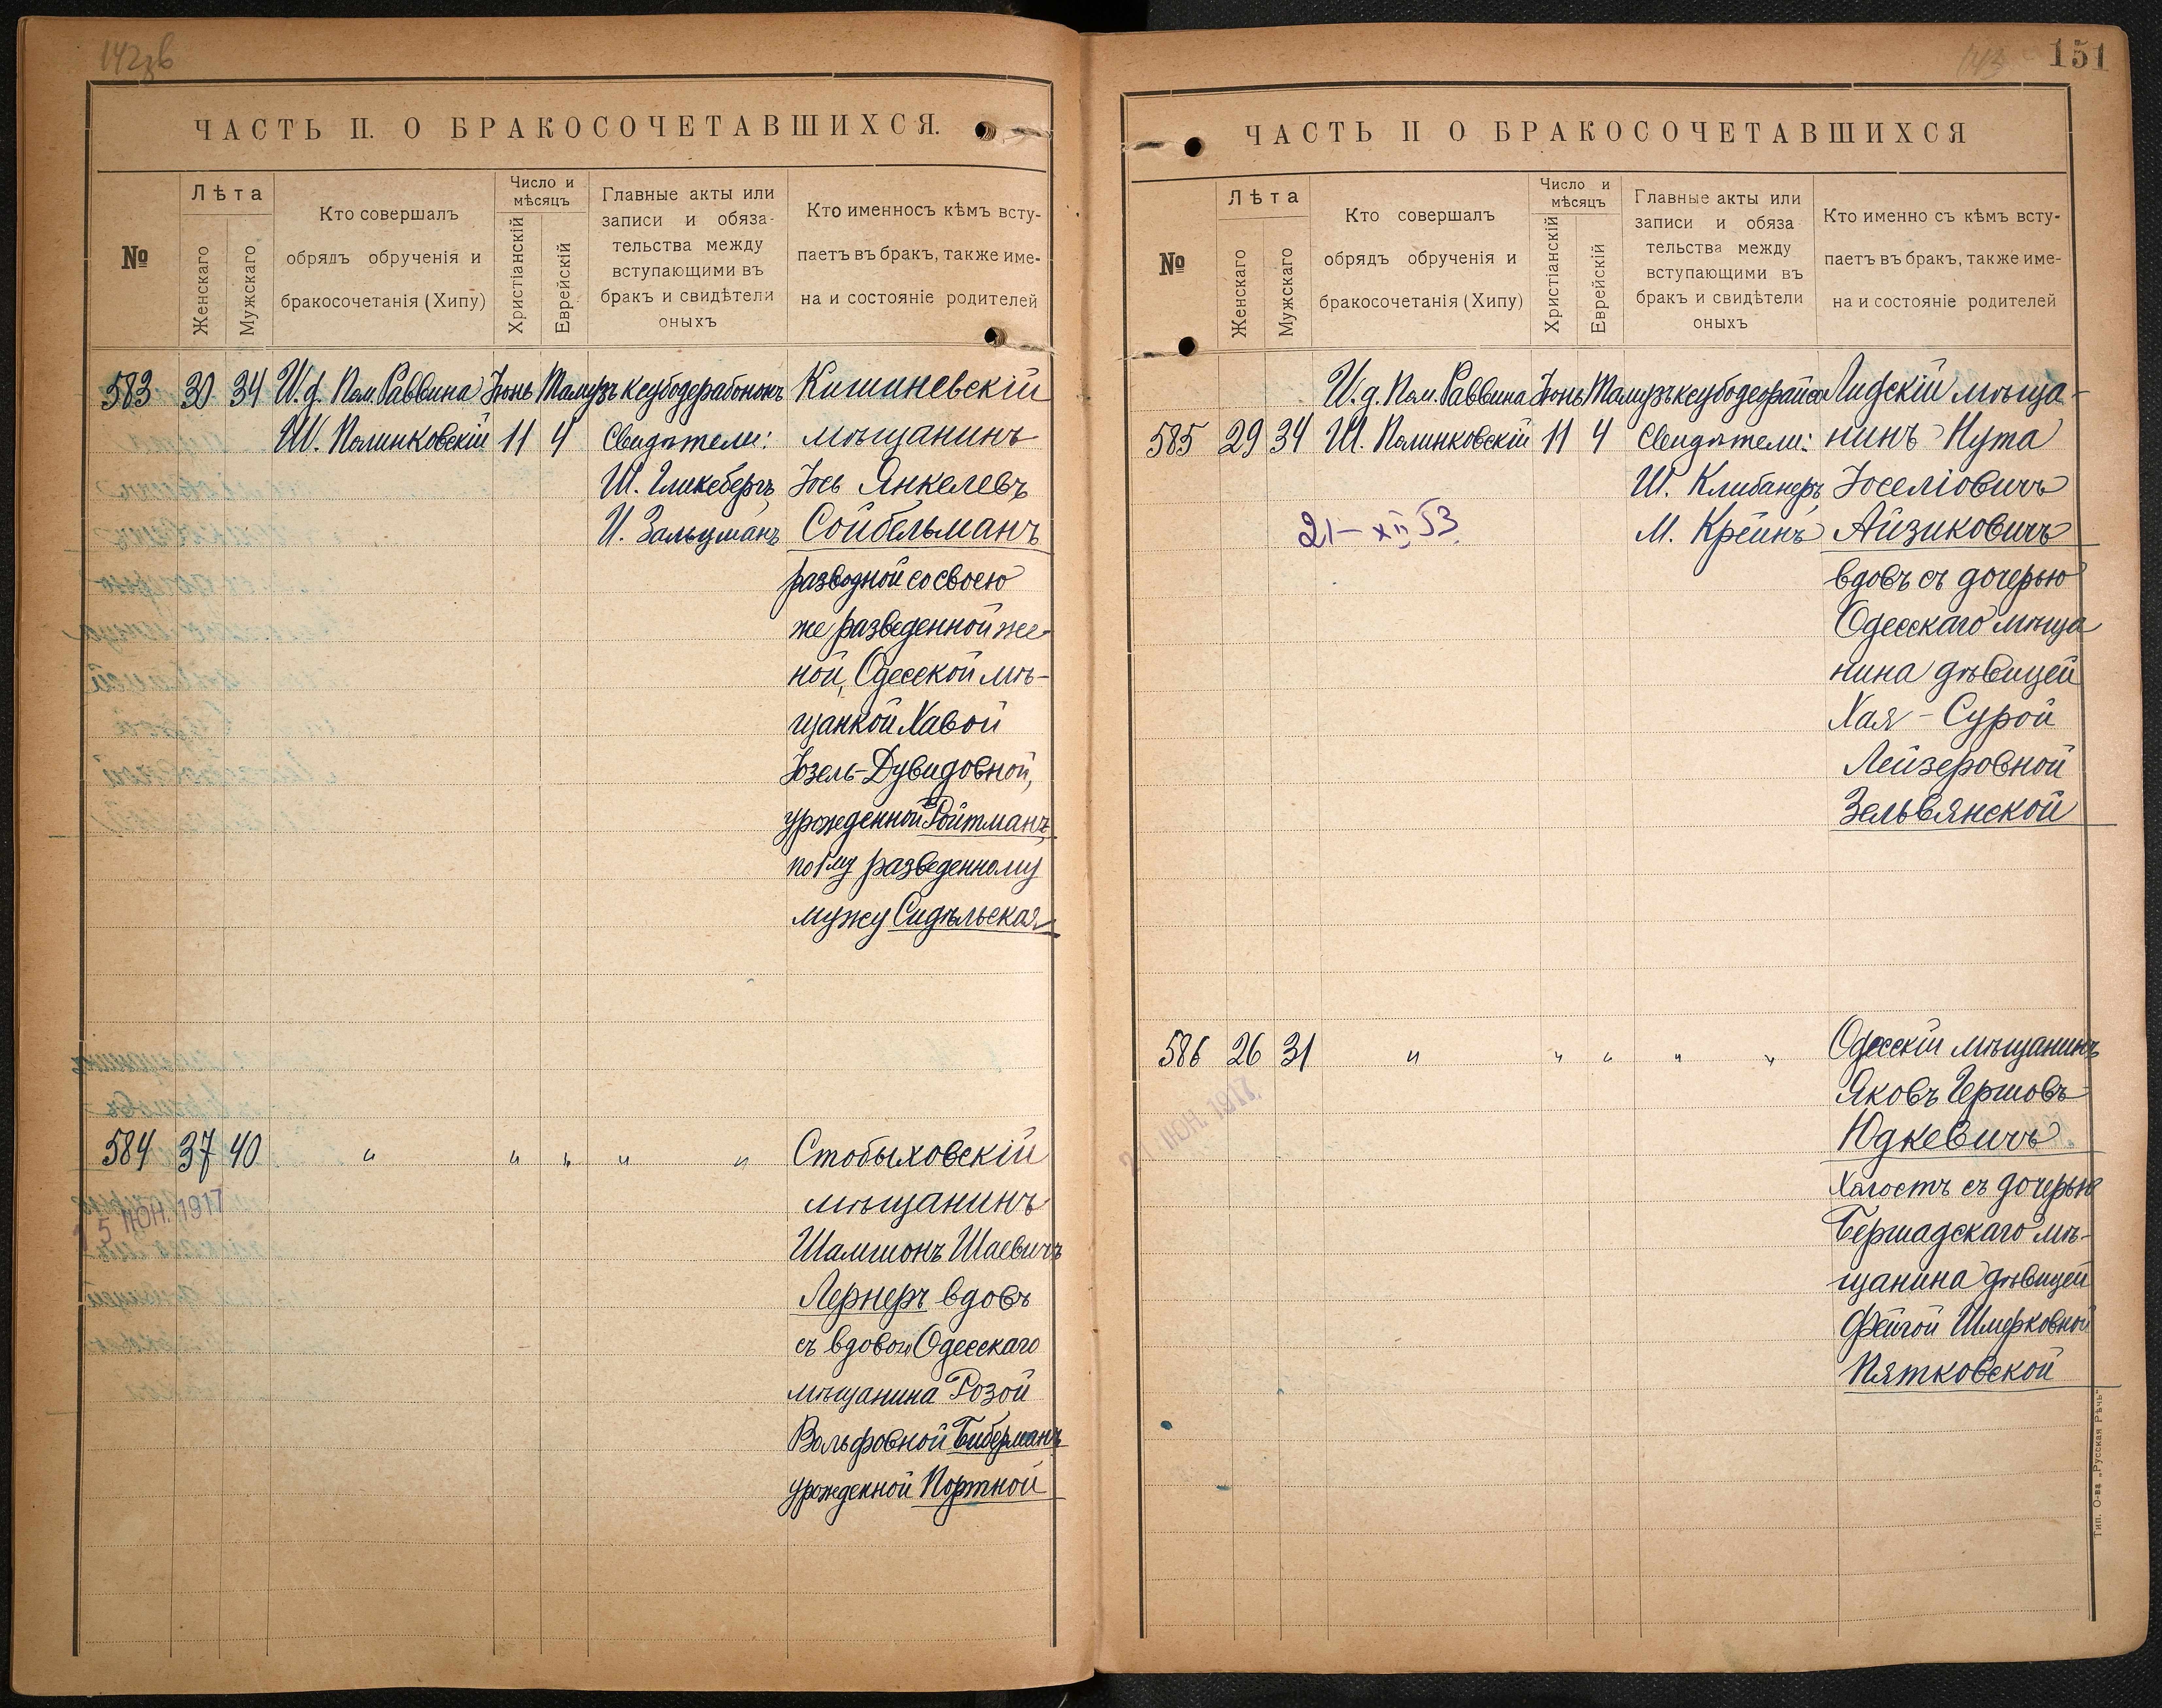 142зв
ЧАСТЬ II. О БРАКОСОЧЕТАВШИХСЯ.
№
Лѣта
Женскаго
Мужскаго
Кто совершалъ
обрядъ обрученія и
бракосочетанія (Хипу)
Число и
мѣсяцъ
Христіанскій
Еврейскій
Главные акты или
записи и обяза-
тельства между
вступающими въ
бракъ и свидѣтели
оныхъ
Кто именносъ кѣмъ всту-
паетъ въ бракъ, также име-
на и состояніе родителей
583 30 34 И.д. Пом. Раввина Іюнь Тамузъ Кишиневскій
Ш. Полинковскій 11 4 Свидѣтели: мѣщанинъ
Ш. Гликсбергъ Іось Янкелевъ
И. Зальцманъ Сойбельманъ
разводной со своею
же разведенной же-
ной, Одесской мѣ-
щанкой Хавой
Іозель-Дувидовной,
урожденной Ройтманъ,
по 1му разведенному
мужу Сидѣльская
584 37 40 " " " " " Стобыховскій
мѣщанинъ
15 ІЮН. 1917
Шамшонъ Шаевичъ
Лернеръ вдовъ
съ вдовой Одесскаго
мѣщанина Розой
Вольфовной Биберманъ
урожденной Портной
151
ЧАСТЬ II О БРАКОСОЧЕТАВШИХСЯ
№
Лѣта
Женскаго
Мужскаго
Кто совершалъ
обрядъ обрученія и
бракосочетанія (Хипу)
Число и
мѣсяцъ
Христіанскій
Еврейскій
Главные акты или
записи и обяза
тельства между
вступающими въ
бракъ и свидѣтели
оныхъ
Кто именно съ кѣмъ всту-
паетъ въ бракъ, также име-
на и состояніе родителей
И.д. Пом. Раввина Іюнь Тамузъ Лидскій мѣща-
585 29 34 Ш. Полинковскій 11 4 Свидѣтели: нинъ Нута
Ш. Клибанеръ Іоселіовичъ
21-XII 53 М. Крейнъ Айзиковичъ
вдовъ съ дочерью
Одесскаго мѣща
нина дѣвицей
Хая-Сурой
Лейзеровной
Зельвянской
586 26 31 " " " " " Одесскій мѣщанинъ
Яковъ Гершовъ
ІЮН. 1917.
Юдкевичъ
холостъ съ дочерью
Бершадскаго мѣ-
щанина дѣвицей
Фейгой Шмерковной
Пятковской
Тип. О-ва „Русская Рѣчь“